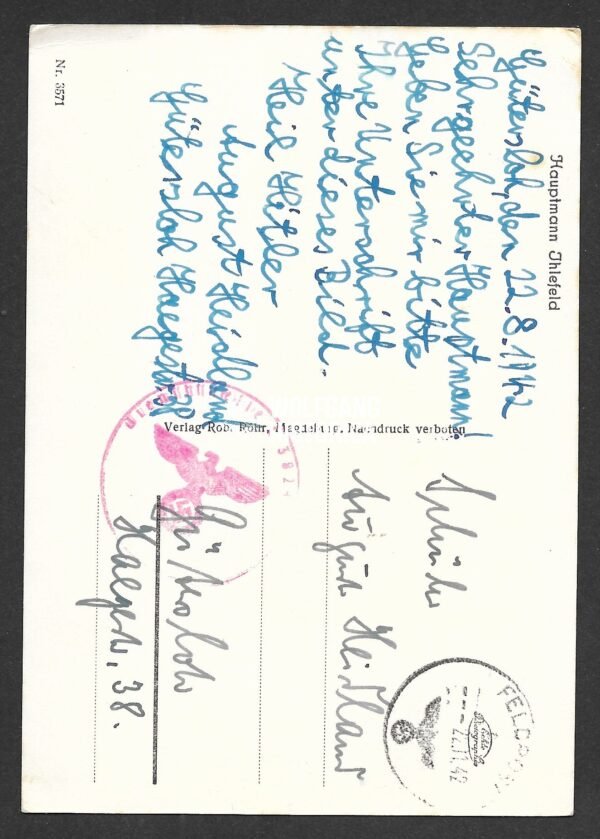 Hauptmann Ihlefeld
Gütersloh, den 22.8.1942
Sehrgeehrter Hauptmann!
Geben Sie mir bitte
Ihre Unterschrift
unter dieses Bild.
Heil Hitler
August Heidland
Gütersloh Haegestr
Nr. 3571
Verlag Rob. Röhr, Magdeburg. Nachdruck verboten
Schüler
August Heidland
Gütersloh
Haegestr. 38.
FELDPOST
Echte
Photographie
42